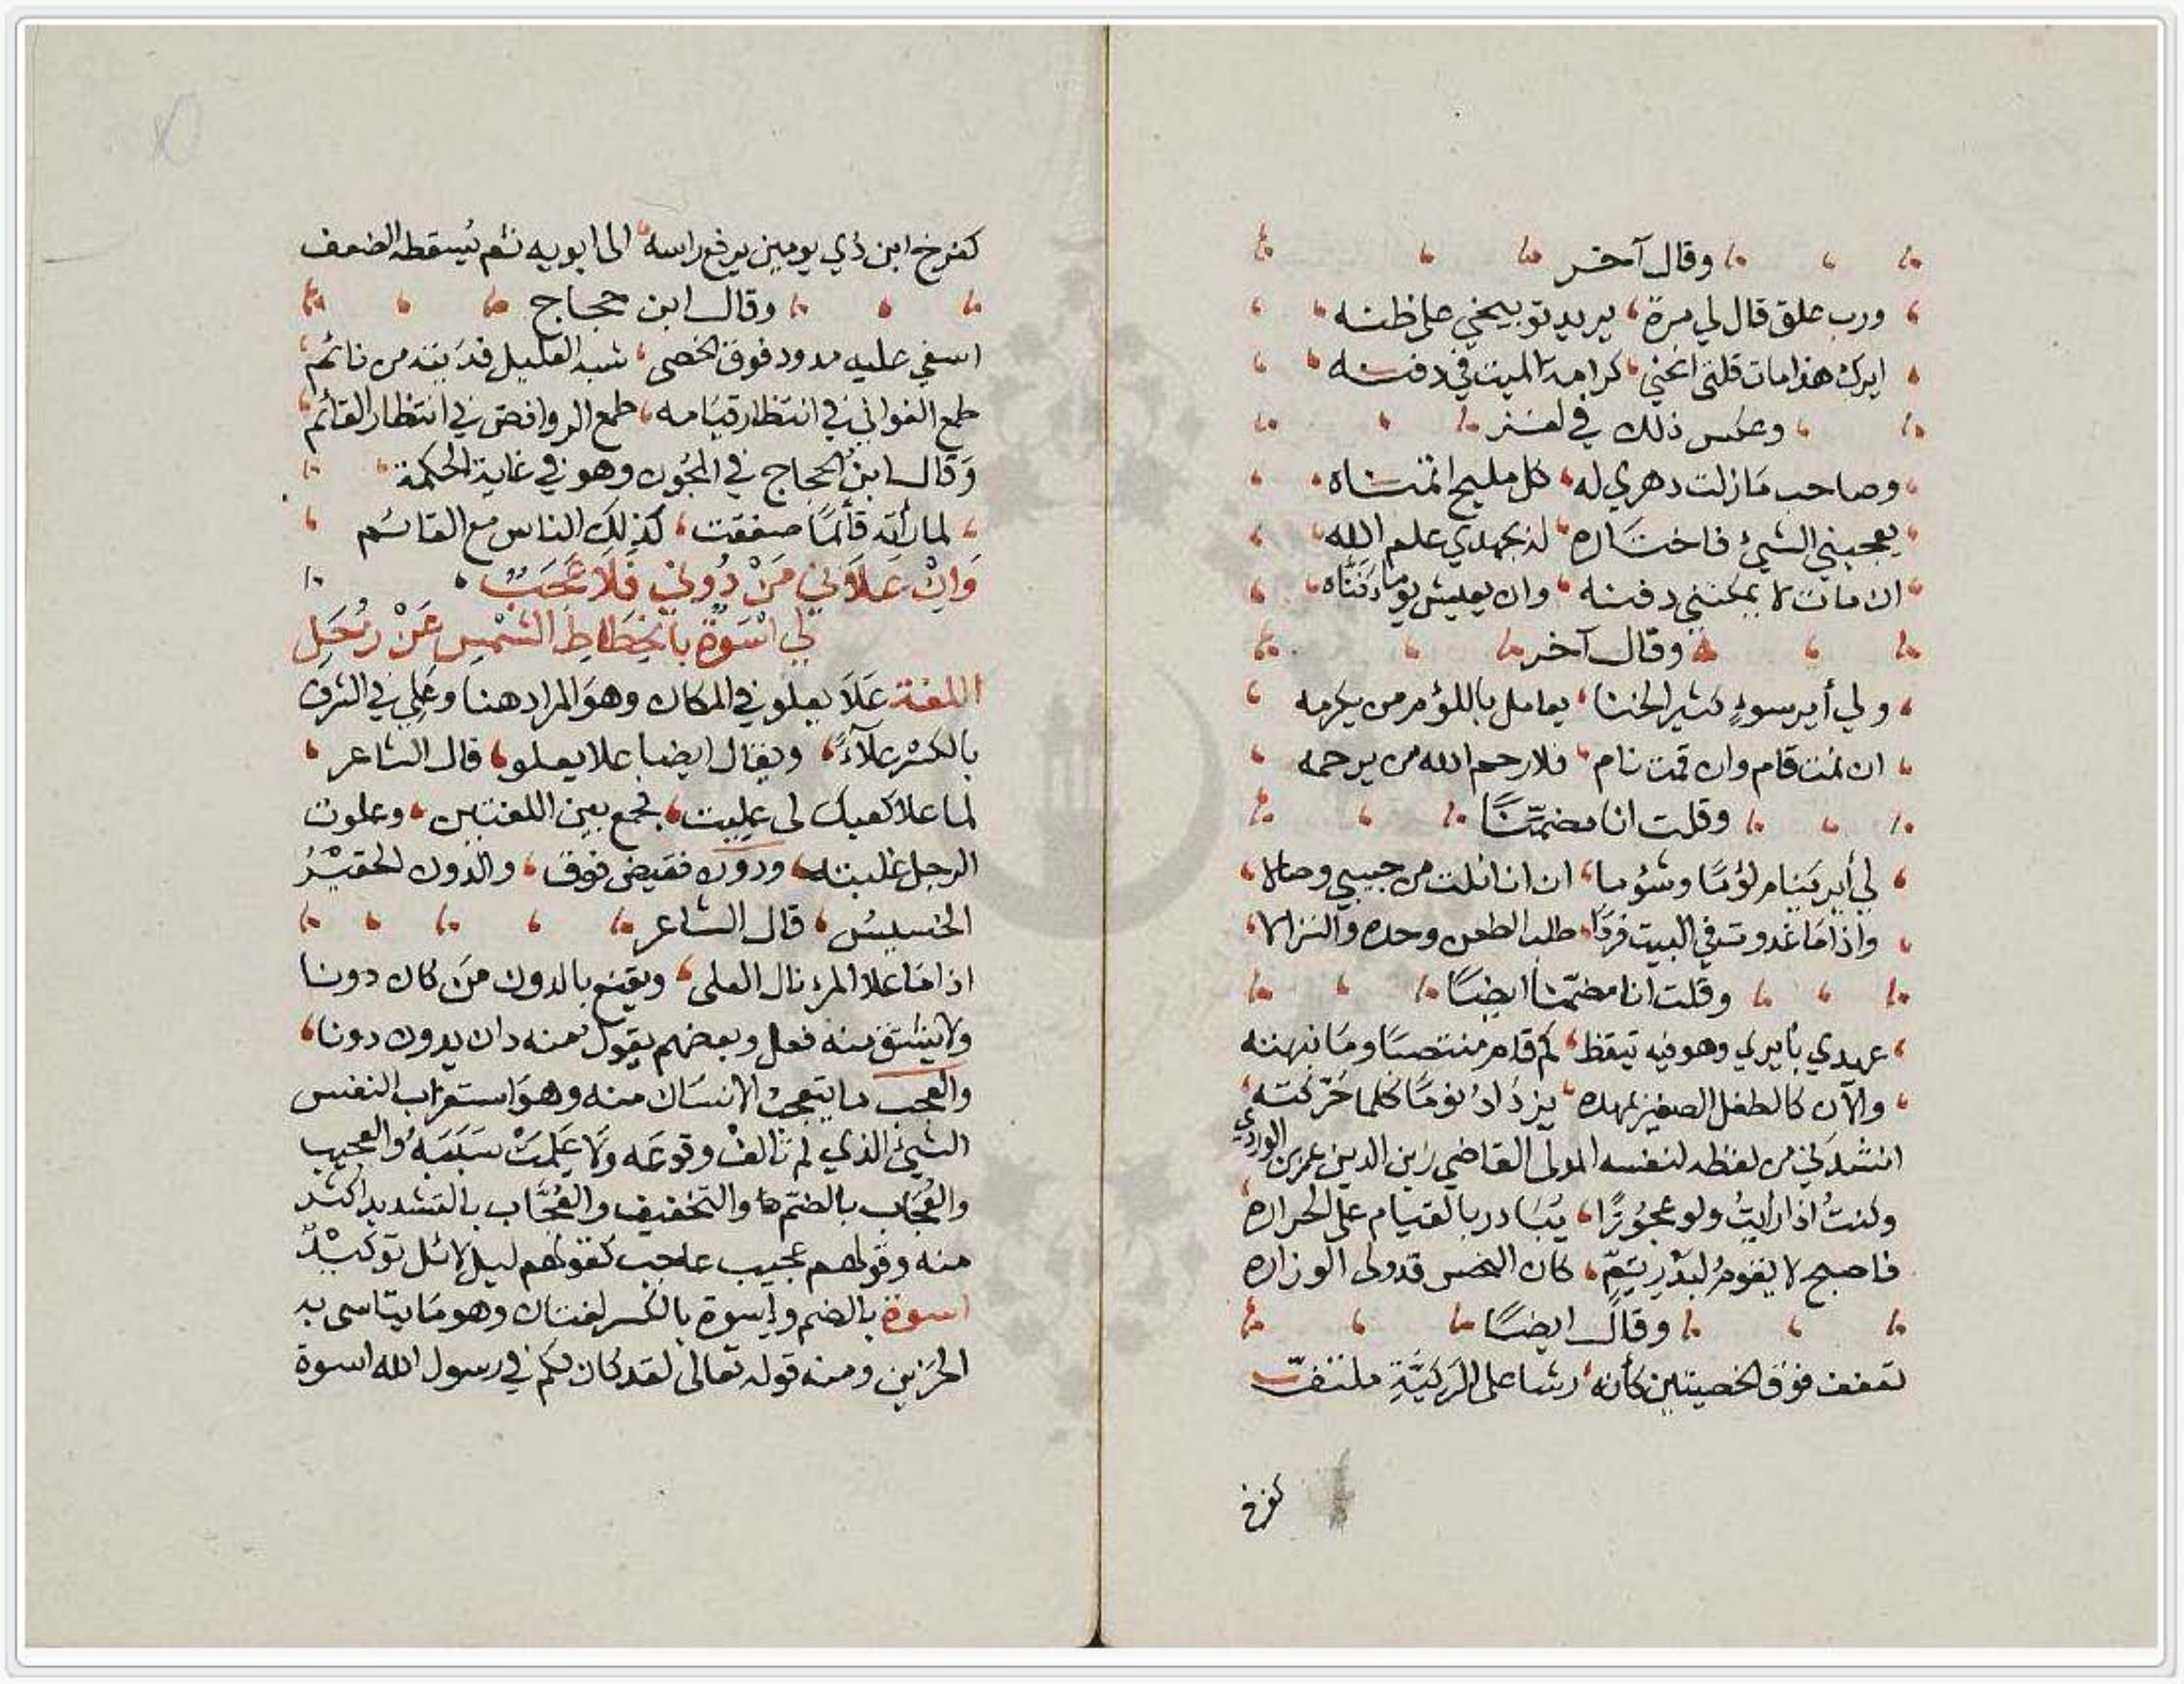 وقال آخر
ورب علق قال لي مرة يريد توبيخي على ظنه
ايرك هذا مات قلت اعني كرامة الميت في دفنه
وعكس ذلك في لغز
وصاحب مازلت دهري له كل مليح اتمناه
يعجبني الشيء فاختاره له بجهدي علم الله
ان مات لا يمكنني دفنه وان يعيش يوما دفناه
وقال آخر
ولي أير سوء كثير الخنا يعامل باللؤم من يكرمه
ان نمت قام وان قمت نام فلا رحم الله من يرحمه
وقلت انا مضمنًا
لي أير ينام لؤمًا وشؤما ان انا نلت من حبيبي وصالا
واذا ما غدوت في البيت فردًا طلب الطعن وحده والنزالا
وقلت انا مضمّنا ايضًا
عهدي بأيري وهو فيه تيقظ كم قام منتصبًا وما نبهته
والآن كالطفل الصغير بمهده يزداد نومًا كلما حرّكته
انشدني من لفظه لنفسه المولى القاضي زين الدين عمر بن الوردي
وكنتُ اذا رأيتُ ولو عجُوزًا يُبَادر بالقيام على الحراره
فاصبح لا يقومُ لبدْرِ تِمٍّ كان النحس قد ولى الوزاره
وقال ايضًا
تعفف فوق الخصيتين كأنه رشا على الرَكيَّةِ ملتفّ
كفرخ
كفرخ ابن ذي يومين يرفع راسه الى ابويه ثم يُسقطه الضعف
وقال ابن حجاج
اسفي عليه مدود فوق الخصى شبه العليل فديته من نائم
طمع الغواني في انتظار قيامه طمع الروافض في انتظار القائم
وَقال ابنُ الحجاج في المجُون وهو في غاية الحكمة
لما رأته قائمًا صفقت كذلِك الناس مع القائم
وَاِنْ عَلَانِي مَنْ دُونِي فَلَا عَجَبٌ
لِي اُسْوَةٌ بِاْنحِطَاطِ الشَّمْسِ عَنْ زُحَلِ
اللغة عَلَا يعلو في المكان وهوَ المراد هنا وعَلِيَ في الشرف
بالكسْر علآءً ويقال ايضا علا يعلو قال الشاعر
لما علا كعبك لي عليت فجمع بين اللغتين وعلوت
الرجل غلبته ودون نقيض فوق والدون الحقيْرُ
الخسيسُ قال الشاعر
اذا مَا علا المرء نال العلى ويقنع بالدون مَن كان دونا
ولا يشتق منه فعل وبعضهم يقول منه دان يدون دونا
والعجب ما يتعجب الانسَان منه وهوَ استغراب النفس
الشيئ الذي لم تالفْ وقوعَه ولا عَلِمَتْ سَبَبَهُ والعجيب
والعُجَاب بالضم والتخفيف والعُجَّاب بالتشديد اكثر
منه وقولهم عجيب عاجب كقولهم ليل لائل توكيْدٌ
اسوة بالضم واِسوة بالكسر لغتان وهو مَا يتاسى به
الحَزين ومنه قوله تعالى لقد كان لكم في رسول الله اسوة